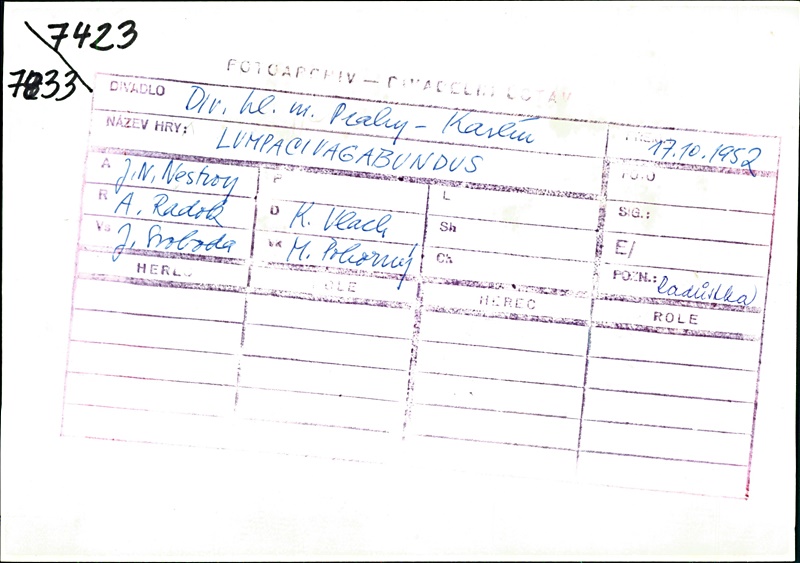 7423
7833
FOTOARCHIV — DIVADELNÍ ÚSTAV
DIVADLO Div. hl. m. Prahy - Karlín
17.10.1952
NÁZEV HRY: LUMPACIVAGABUNDUS
FOTO
A J. N. Nestroy
P
L
SIG.:
R A. Radok
D K. Vlach
Sh
E/
Vs J. Svoboda
Vk M. Pokorný
Ch
POZN.: zadùška
HEREC
ROLE
HEREC
ROLE